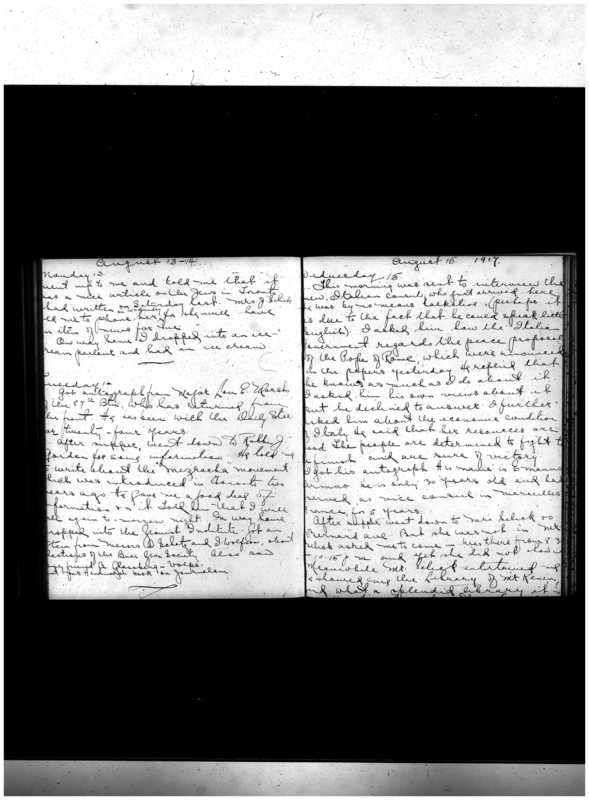 August 13-14
Monday 13
went me to me and told me that it
was a nice article on the Jews in Toronto
had written on Saturday last. Mrs J. Selick
told me to phone her, for she will have
an item of news for me.
On way home I dropped into an ice
cream parlour and had an ice cream
Tuesday 14
Got autograph from Major Len E. Marsh
of the 87th Btn. who has returned from
the front. He has been with the Daily Star
for twenty-four years.
After supper, went down to Rabbi J.
Gordon for some information. He told me
to write about the Mezracha movement
which was introduced in Toronto two
years ago. He gave me a good deal of
information on it. Told him that I will
see him again to-morrow night. On way home
dropped into the Jewish Institute. Got an
item from Messrs D. Selitz and I. Wolfson about
elections of the Boys Club Society. Also saw
on Journalism
August 15 1917.
Wednesday 15
This morning was sent to interview the
new Italian Consul, who just arrived here.
He was by no means talkative. (Perhaps it
is due to the fact that he could speak little
English). I asked him how the Italian
Government regards the peace proposals
of the Pope of Rome, which were announced
in the papers yesterday. He replied that
he knows as much as I do about it.
I asked him his own views about it
but he declined to answer. I further
asked him about the economic condition
of Italy. He said that her resources are
good. The people are determined to fight to
the finish and are sure of victory.
I got his autograph. His name is Emanuel
he is only 30 years old and had
served as vice consul in Marseilles
France, for 5 years.
After supper went down to Mrs Selick 50
Burnard ave. But she was not in. Mrs
Selick asked me to come. Was there from 8.30
to 10.15 p.m. and yet she did not show in
Meanwhile Mr. Selick entertained me
showing the library of Mr Keven,
and what a splendid library it